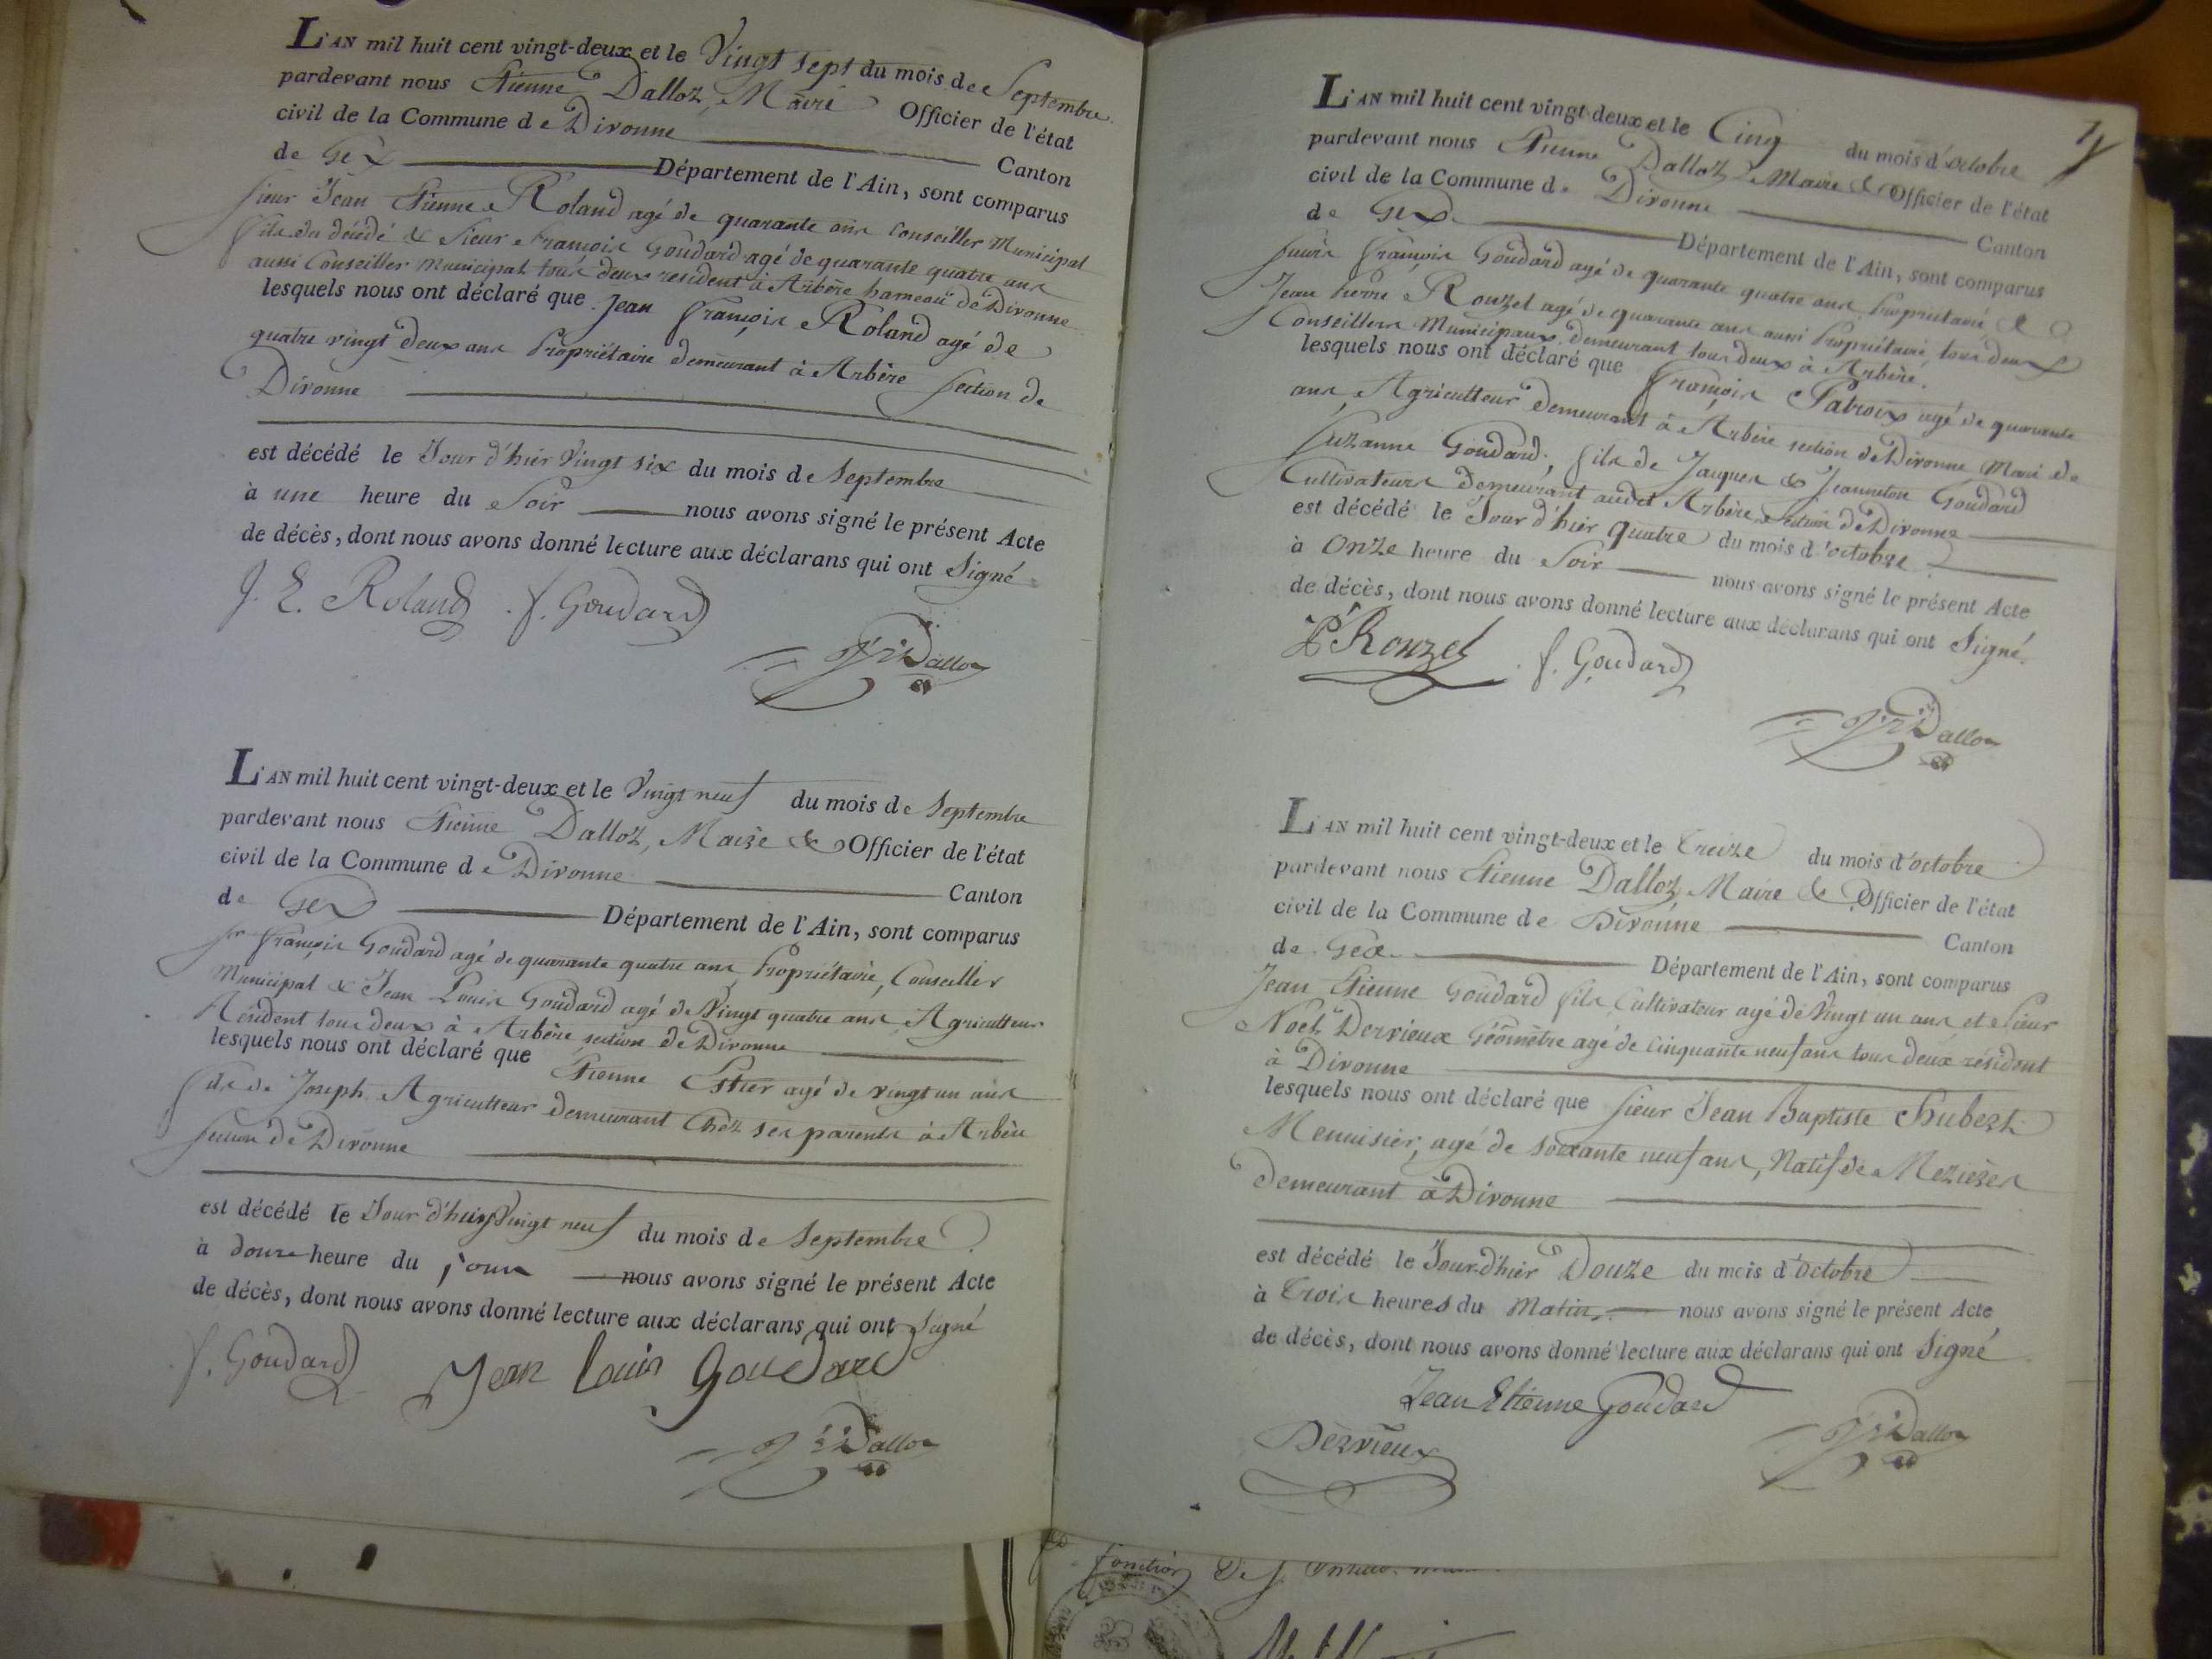 L'AN mil huit cent vingt-deux et le Vingt sept du mois de Septembre
pardevant nous Etienne Dalloz, Maire Officier de l'état
civil de la Commune de Divonne Canton
de Gex Département de l'Ain, sont comparus
Sieur Jean Etienne Roland agé de quarante ans Conseiller Municipal
fils du décédé & Sieur François Goudard agé de quarante quatre ans
aussi Conseiller Municipal tous deux resident à Arbère hameau de Divonne
lesquels nous ont déclaré que Jean François Roland agé de
quatre vingt deux ans Propriétaire demeurant à Arbère section de
Divonne
est décédé le Jour d'hier Vingt six du mois de Septembre
à une heure du Soir nous avons signé le présent Acte
de décès, dont nous avons donné lecture aux déclarans qui ont Signé
J. E. Roland f. Goudard
Dalloz
L'AN mil huit cent vingt-deux et le Vingt neuf du mois de Septembre
pardevant nous Etienne Dalloz, Maire & Officier de l'état
civil de la Commune de Divonne Canton
de Gex Département de l'Ain, sont comparus
Sr François Goudard agé de quarante quatre ans Propriétaire, Conseiller
Municipal & Jean Louis Goudard agé de Vingt quatre ans Agriculteur
Resident tous deux à Arbère section de Divonne
lesquels nous ont déclaré que Etienne Estier agé de vingt un ans
fils de Joseph Agriculteur demeurant Chez ses parents à Arbère
section de Divonne
est décédé le Jour d'huy Vingt neuf du mois de Septembre
à douze heure du jour nous avons signé le présent Acte
de décès, dont nous avons donné lecture aux déclarans qui ont Signé
f. Goudard Jean Louis Goudard
Dalloz
L'AN mil huit cent vingt-deux et le Cinq du mois d'octobre
pardevant nous Etienne Dalloz Maire & Officier de l'état
civil de la Commune de Divonne Canton
de Gex Département de l'Ain, sont comparus
François Goudard agé de quarante quatre ans Propriétaire &
Jean Pierre Rouzet agé de quarante ans aussi Propriétaire, tous deux
Conseillers Municipaux, demeurant tous deux à Arbère.
lesquels nous ont déclaré que François Patroix agé de quarante
ans, Agriculteur demeurant à Arbère section de Divonne Mari de
Suzanne Goudard, fils de Jaques & Jeanneton Goudard
Cultivateurs demeurant audit Arbère, section de Divonne
est décédé le Jour d'hier quatre du mois d'octobre
à Onze heure du Soir nous avons signé le présent Acte
de décès, dont nous avons donné lecture aux déclarans qui ont Signé.
P Rouzet f. Goudard
Dalloz
L'AN mil huit cent vingt-deux et le treize du mois d'octobre
pardevant nous Etienne Dalloz, Maire & Officier de l'état
civil de la Commune de Divonne Canton
de Gex Département de l'Ain, sont comparus
Jean Etienne Goudard fils Cultivateur agé de Vingt un ans et Sieur
Noël Dervieux Géomètre agé de Cinquante neuf ans tous deux résident
à Divonne
lesquels nous ont déclaré que Sieur Jean Baptiste Hubert
Menuisier, agé de soixante neuf ans, Natif de Mezières
demeurant à Divonne
est décédé le Jour d'hier Douze du mois d'octobre
à trois heures du Matin, nous avons signé le présent Acte
de décès, dont nous avons donné lecture aux déclarans qui ont Signé
Jean Etienne Goudard
Dervieux Dalloz
fonction